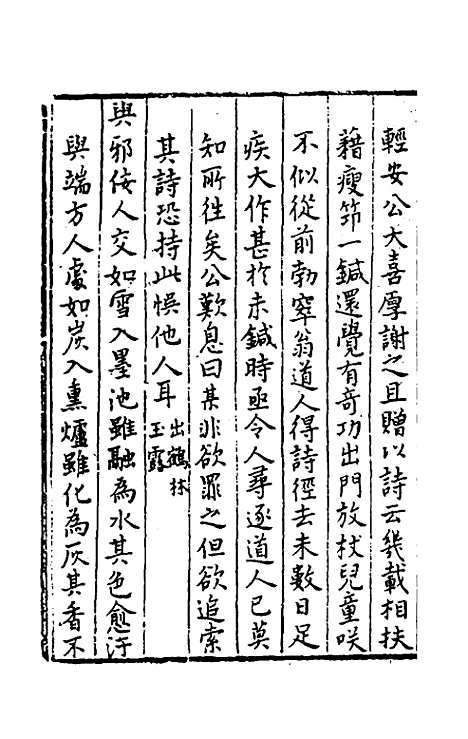 輕安公大喜厚謝之且贈以詩云幾載相扶
藉瘦笻一鍼還覺有奇功出門放杖兒童咲
不似從前勃窣翁道人得詩徑去未數日足
疾大作甚於未鍼時亟令人尋逐道人已莫
知所往矣公歎息曰某非欲罪之但欲追索
其詩恐持此悞他人耳出鶴林玉露
與邪佞人交如雪入墨池雖融為水其色愈汙
與端方人處如炭入熏爐雖化為灰其香不